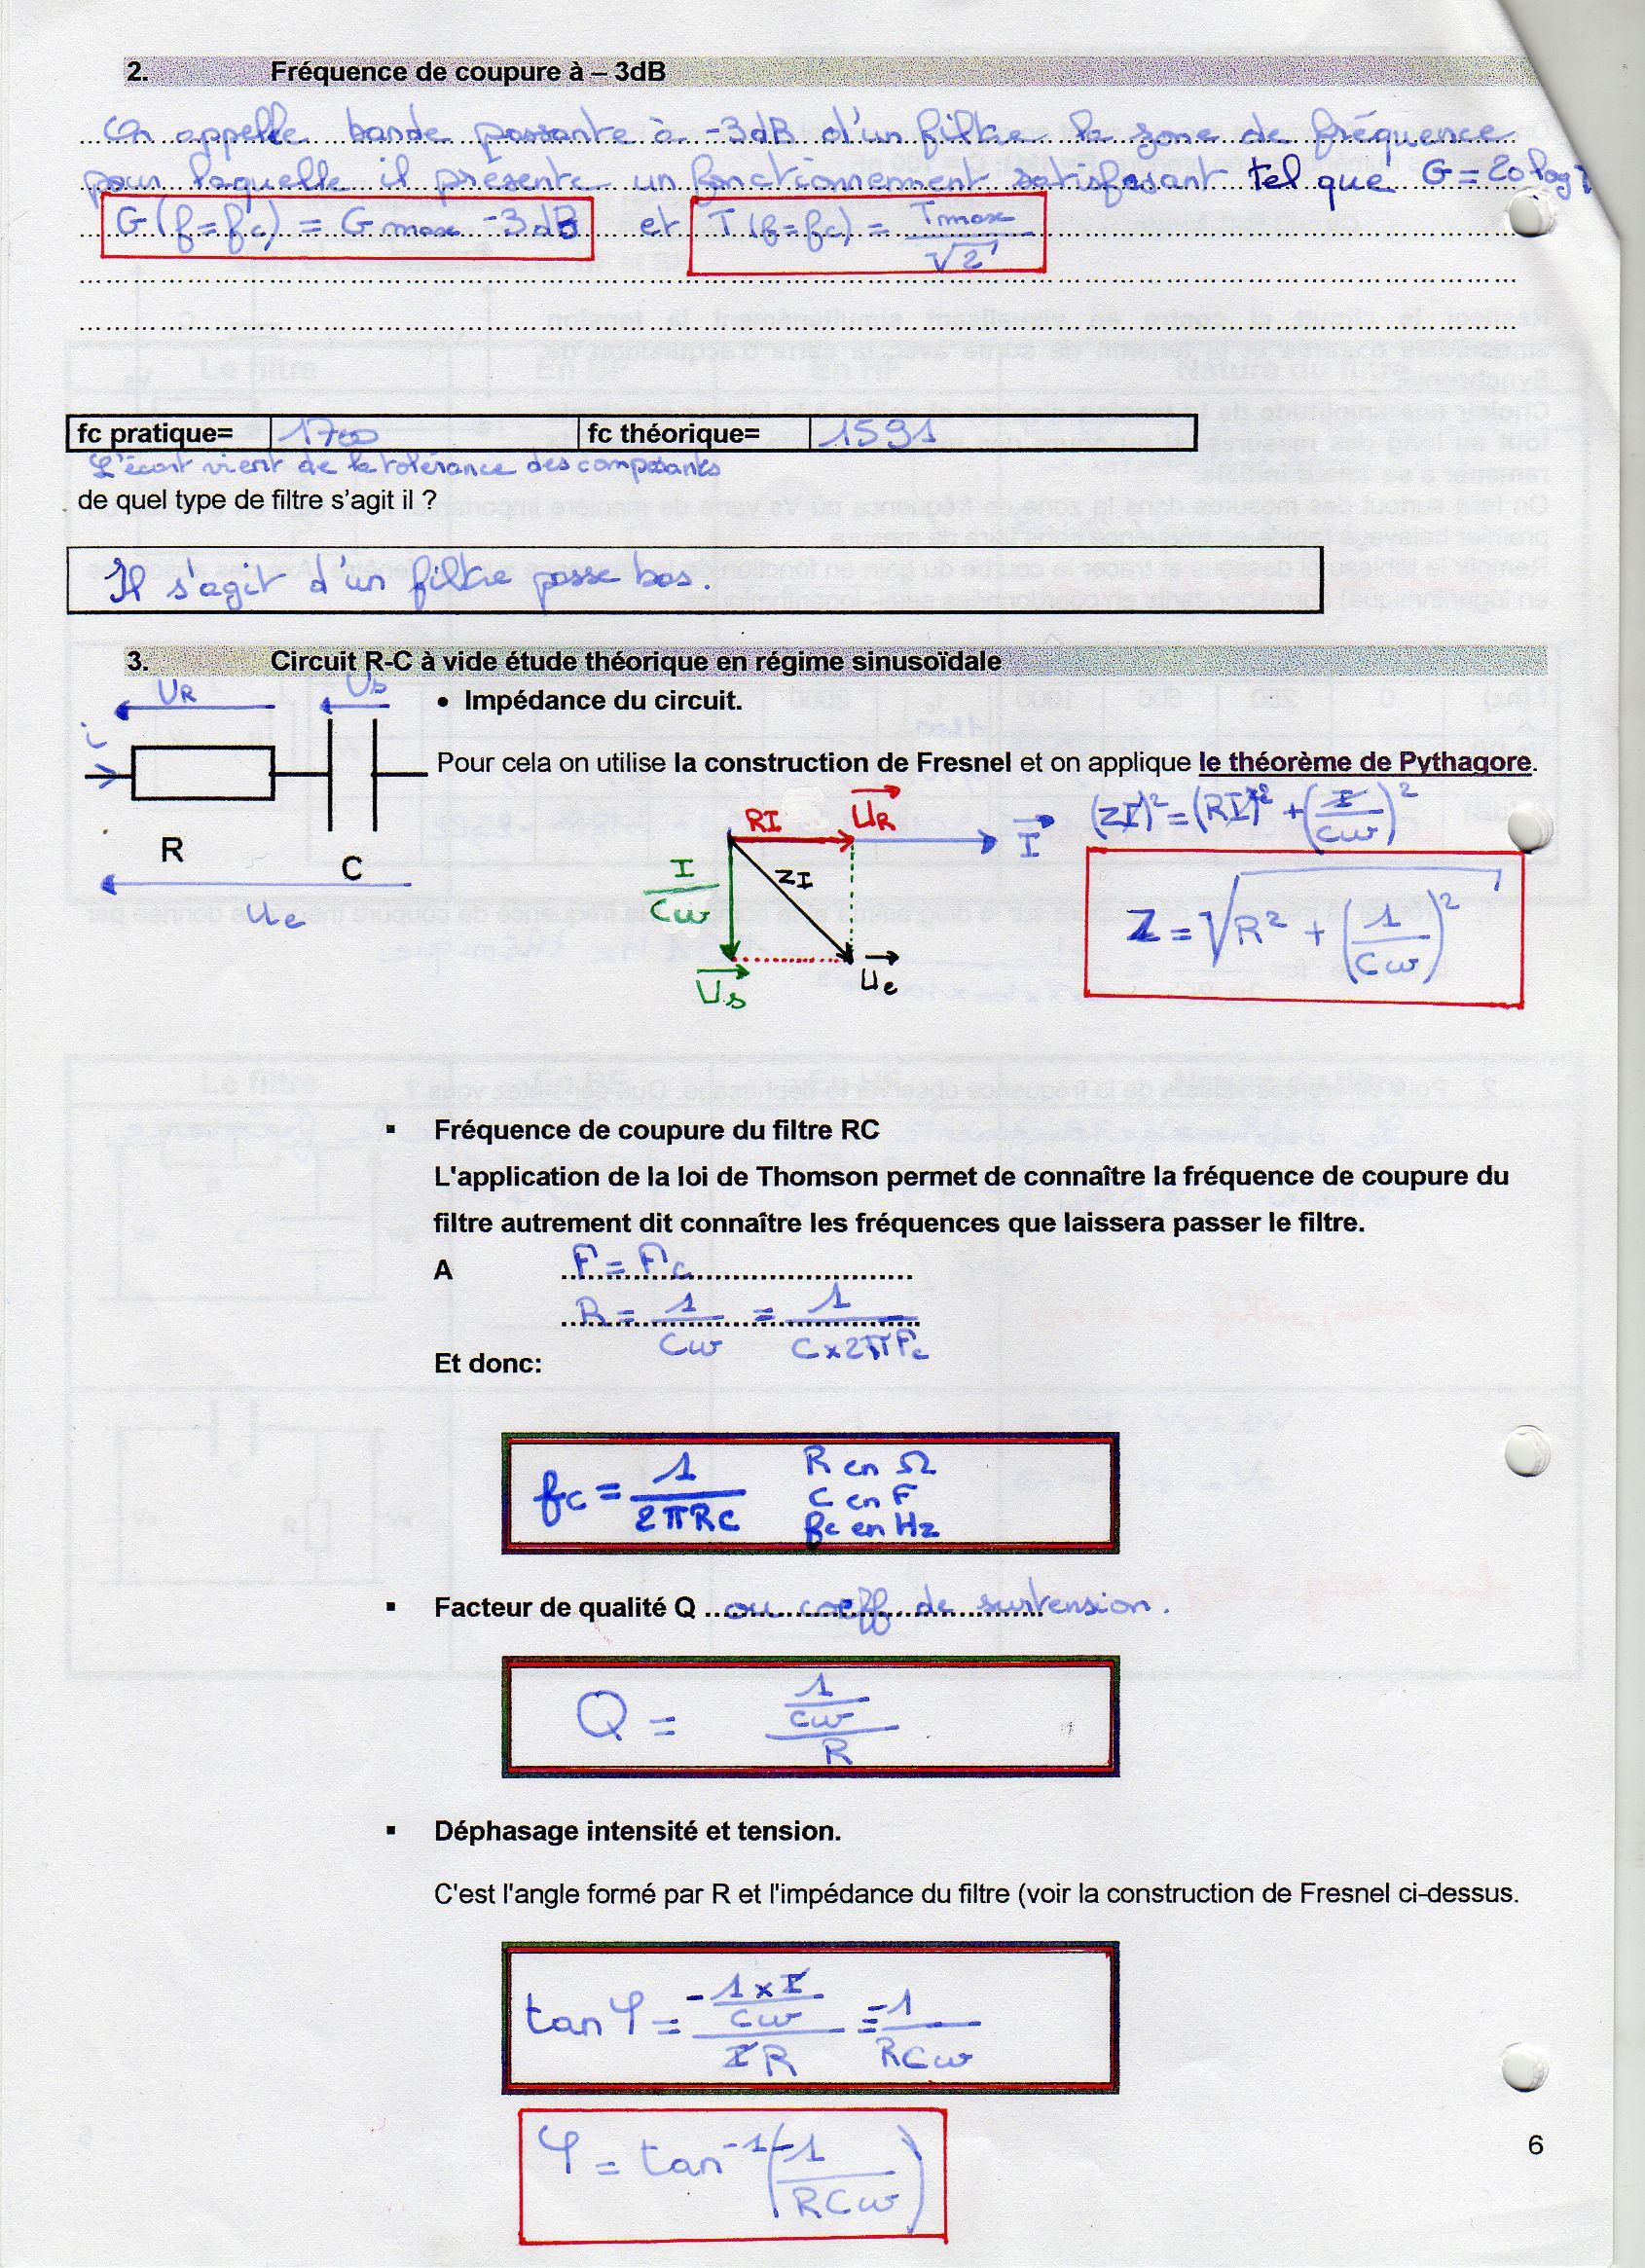 2. Fréquence de coupure à – 3dB
On appelle bande passante à -3dB d'un filtre la zone de fréquence
pour laquelle il présente un fonctionnement satisfaisant tel que G = 20 log T
G(f=fc) = Gmax -3dB et T(f=fc) = Tmax/√2
fc pratique= 1700 fc théorique= 1591
L'écart vient de la tolérance des composants
de quel type de filtre s'agit il ?
Il s'agit d'un filtre passe bas.
3. Circuit R-C à vide étude théorique en régime sinusoïdale
UR Us
• Impédance du circuit.
i
Pour cela on utilise la construction de Fresnel et on applique le théorème de Pythagore.
R C
Ue
RI UR I
I/Cω ZI
Us Ue
(ZI)² = (RI)² + (I/Cω)²
Z = √(R² + (1/Cω)²)
▪ Fréquence de coupure du filtre RC
L'application de la loi de Thomson permet de connaître la fréquence de coupure du
filtre autrement dit connaître les fréquences que laissera passer le filtre.
A F = Fc
R = 1/Cω = 1/C×2πFc
Et donc:
fc = 1/2πRC R en Ω
C en F
fc en Hz
▪ Facteur de qualité Q ou coeff de surtension.
Q = (1/Cω)/R
▪ Déphasage intensité et tension.
C'est l'angle formé par R et l'impédance du filtre (voir la construction de Fresnel ci-dessus.
tan φ = (-1×I/Cω)/(IR) = -1/RCω
φ = tan⁻¹(-1/RCω)
6